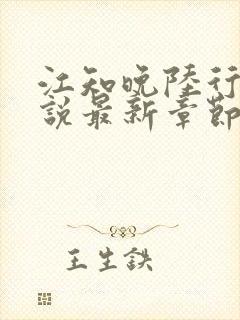 江知晚陸行
說最新章節
王生鉄